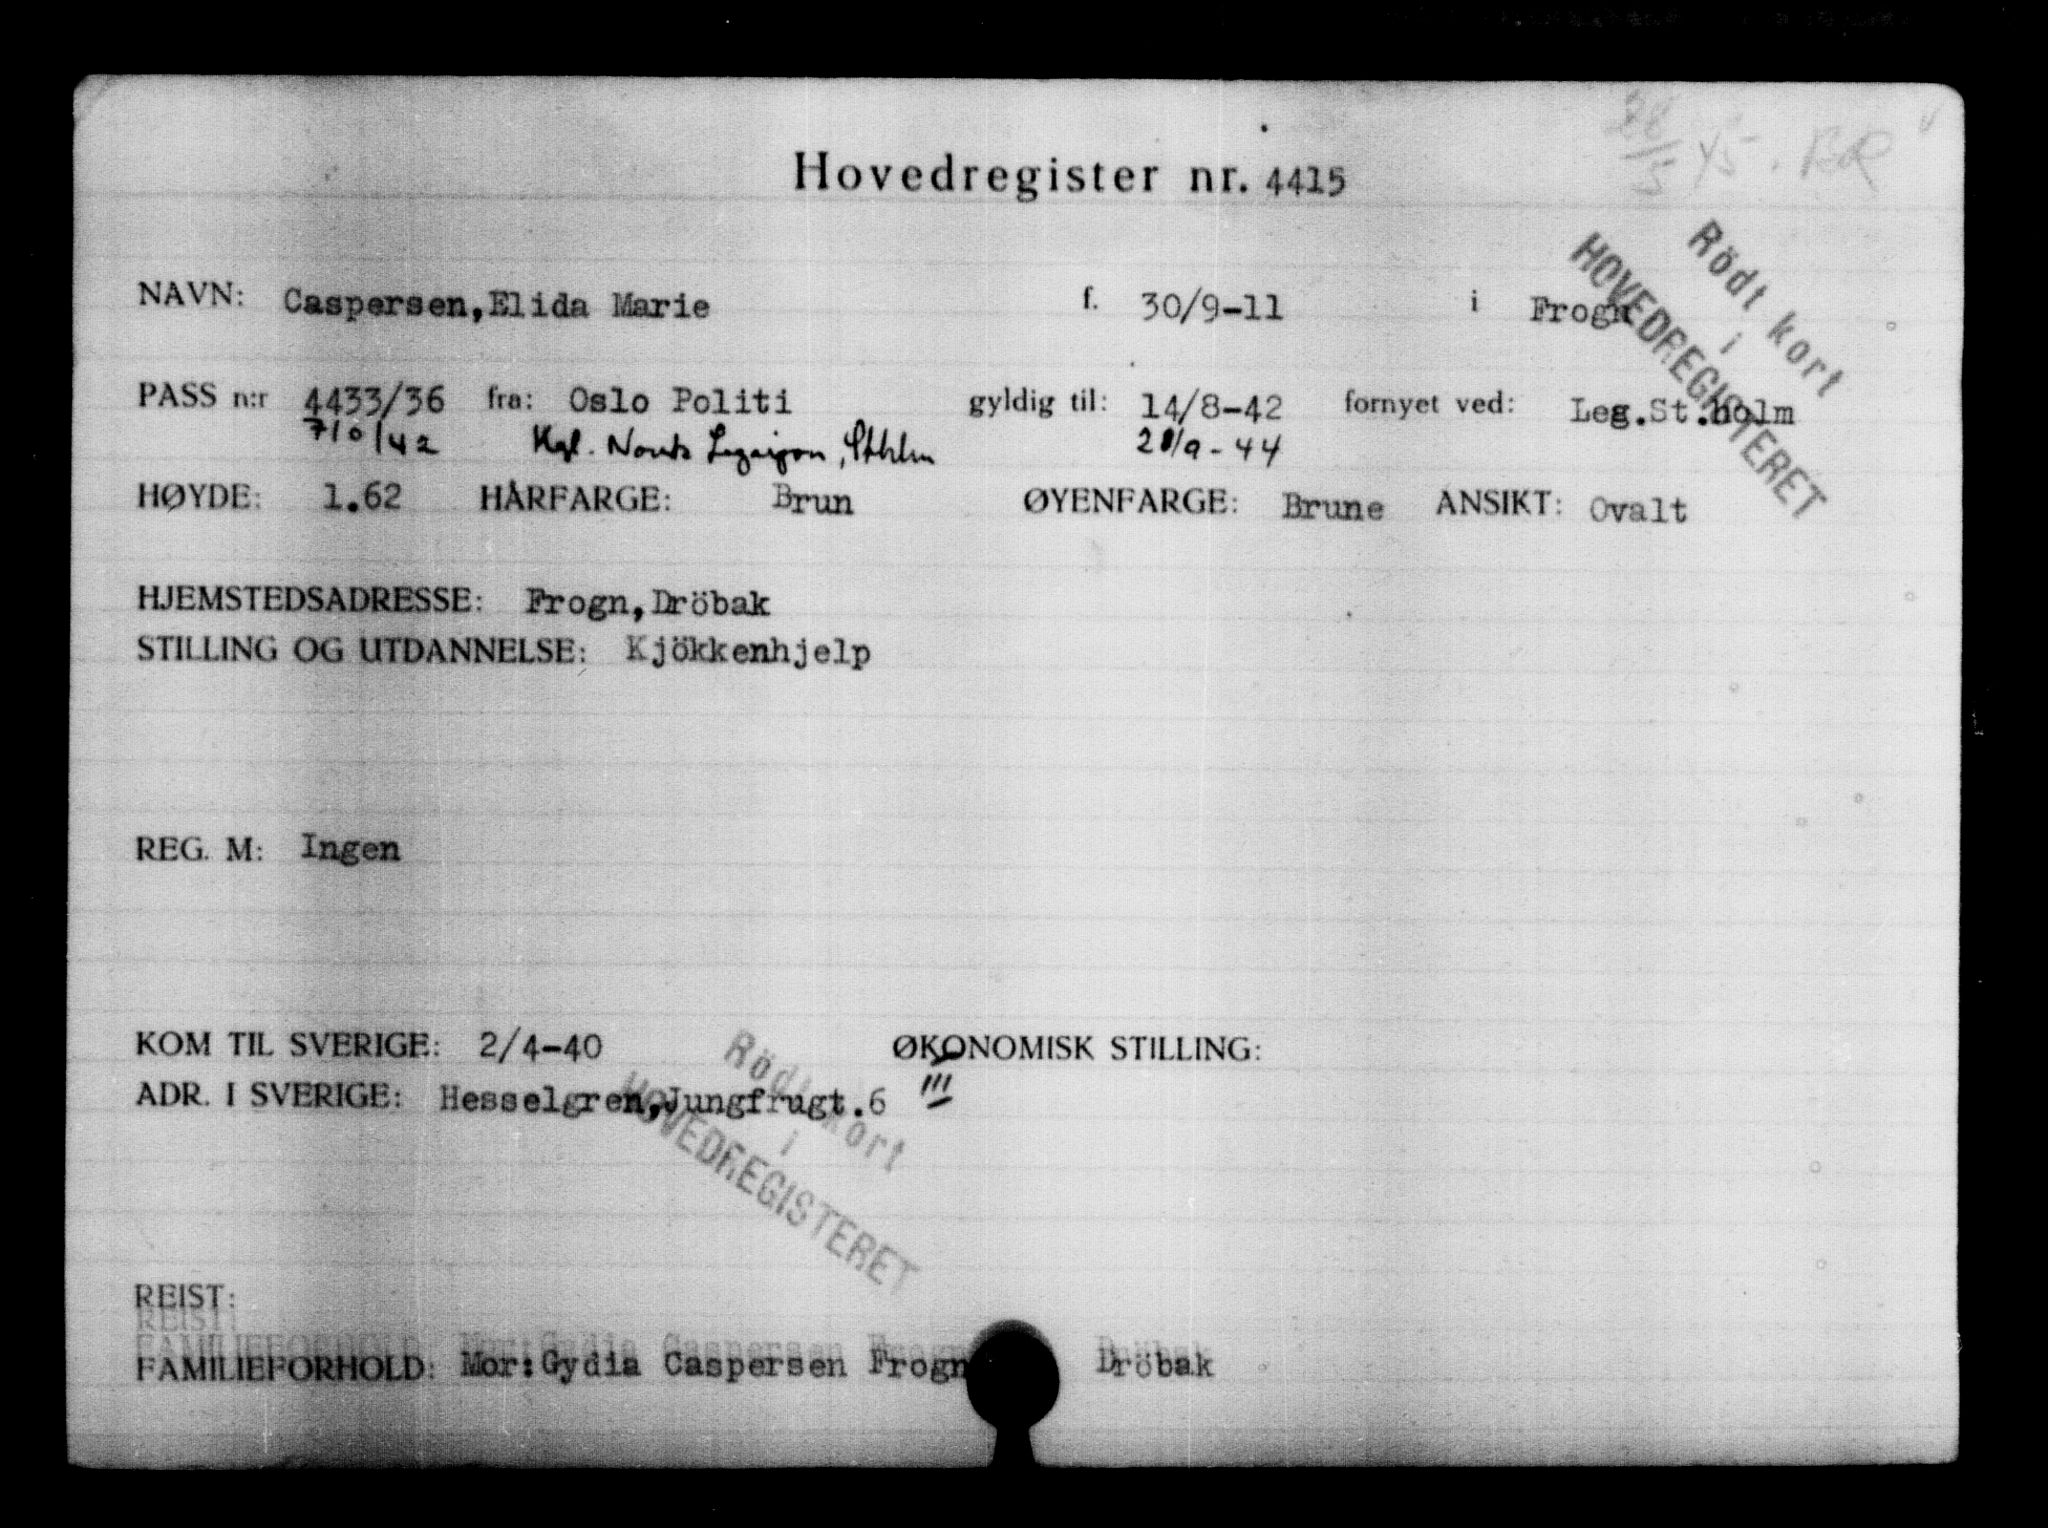 28/5 45. ER
Hovedregister nr. 4415
Rödt kort
i
HOVEDREGISTERET
NAVN: Caspersen,Elida Marie f. 30/9-11 i Frogn
PASS n:r 4433/36 fra: Oslo Politi gyldig til: 14/8-42 fornyet ved: Leg.St.holm
Kgl. Norsk Legasjon, Sthlm
HØYDE: 1.62 HÅRFARGE: Brun ØYENFARGE: Brune ANSIKT: Ovalt
HJEMSTEDSADRESSE: Frogn,Dröbak
STILLING OG UTDANNELSE: Kjökkenhjelp
REG. M: Ingen
KOM TIL SVERIGE: 2/4-40 ØKONOMISK STILLING:
ADR. I SVERIGE: Hesselgren,Jungfrugt.6 III
Rödt kort
i
HOVEDREGISTERET
REIST:
FAMILIEFORHOLD: Mor:Gydia Caspersen Frogn Dröbak